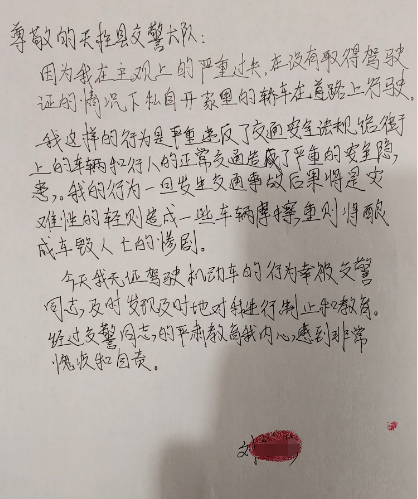 尊敬的天柱县交警大队:
因为我在主观上的严重过失,在没有取得驾驶
证的情况下私自开家里的轿车在道路上行驶。
我这样的行为是严重违反了交通安全法规,给街
上的车辆和行人的正常交通造成了严重的安全隐
患,。我的行为一旦发生交通事故后果将是灾
难性的轻则造成一些车辆摩擦,重则将酿
成车毁人亡的惨剧。
今天我无证驾驶机动车的行为幸被交警
同志,及时发现及时地对我进行制止和教育。
经过交警同志,的严肃教育我内心,感到非常
愧疚和自责。
刘